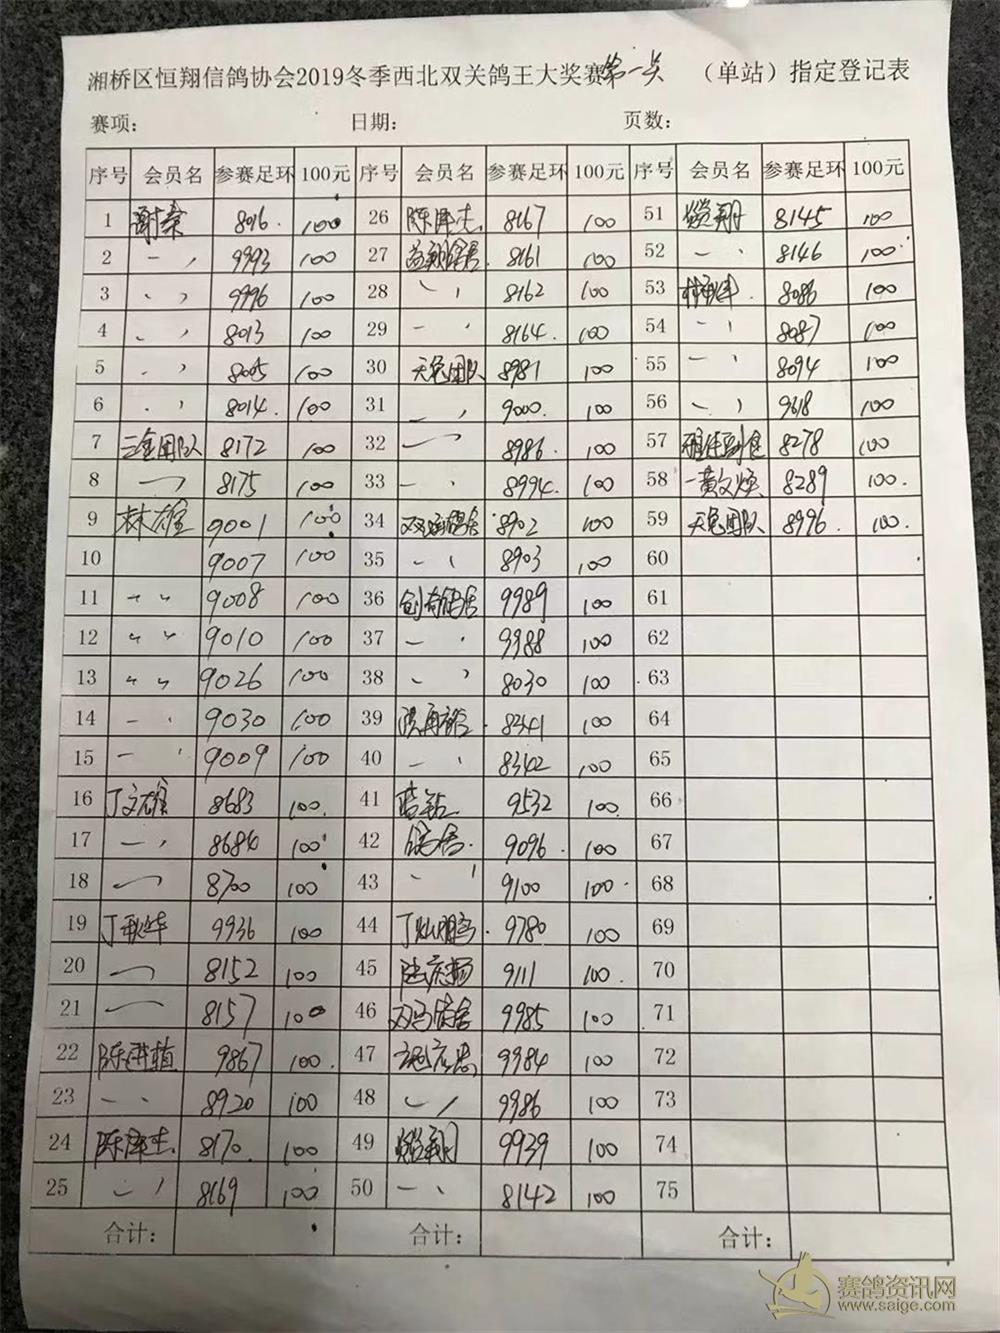 湘桥区恒翔信鸽协会2019冬季西北双关鸽王大奖赛第一关 （单站）指定登记表
赛项： 日期： 页数：
序号 会员名 参赛足环 100元 序号 会员名 参赛足环 100元 序号 会员名 参赛足环 100元
1 谢 8016 100 26 陈泽杰 8167 100 51 翔 8145 100
2 〃 9993 100 27 益翔鸽舍 8161 100 52 〃 8146 100
3 〃 9996 100 28 〃 8162 100 53 林 8086 100
4 〃 8013 100 29 〃 8164 100 54 〃 8087 100
5 〃 8005 100 30 天龟团队 8981 100 55 〃 8094 100
6 〃 8014 100 31 〃 9000 100 56 〃 9618 100
7 三金团队 8172 100 32 〃 8986 100 57 8278 100
8 〃 8175 100 33 〃 8994 100 58 黄文焕 8289 100
9 林雄 9001 100 34 双鸽舍 8902 100 59 天龟团队 8996 100
10 9007 100 35 〃 8903 100 60
11 〃 9008 100 36 创奇鸽舍 9989 100 61
12 〃 9010 100 37 〃 9988 100 62
13 〃 9026 100 38 〃 8030 100 63
14 〃 9030 100 39 洪再 8341 100 64
15 〃 9009 100 40 〃 8342 100 65
16 丁文雄 8683 100 41 蓝钻 9532 100 66
17 〃 8684 100 42 鸽舍 9096 100 67
18 〃 8700 100 43 〃 9100 100 68
19 丁耿华 9936 100 44 丁灿鹏 9780 100 69
20 〃 8152 100 45 陆庆扬 9111 100 70
21 〃 8157 100 46 双马鸽舍 9985 100 71
22 陈泽植 9867 100 47 9984 100 72
23 〃 8920 100 48 〃 9986 100 73
24 陈泽杰 8170 100 49 翔 9939 100 74
25 〃 8169 100 50 〃 8142 100 75
合计： 合计： 合计：
赛鸽资讯网
www.saige.com